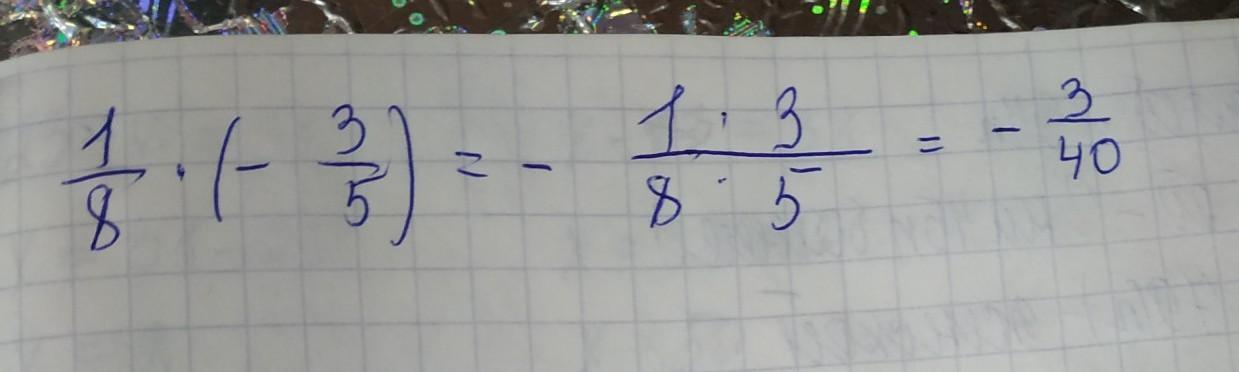 1/8 · (- 3/5) = - 1 · 3/8 · 5 = - 3/40